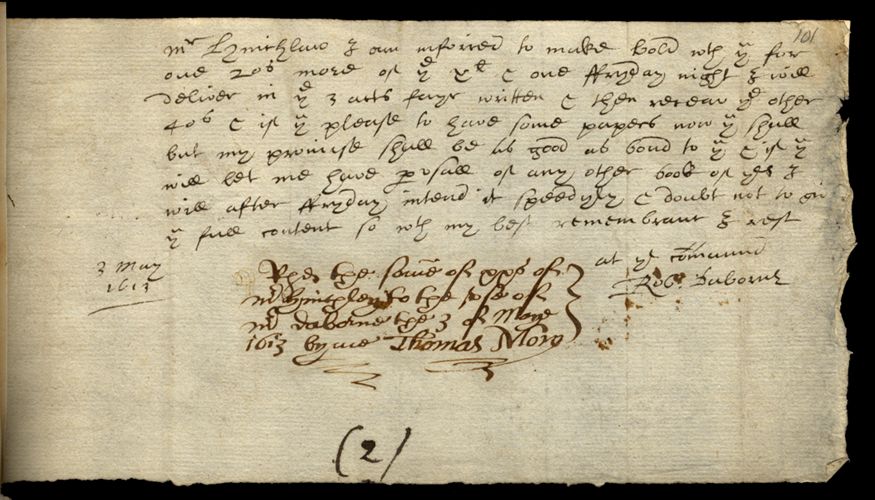 101
mr Hinchlaw I am inforced to make bold wth yu for
one 20s more of ye xl & one ffryday night I will
deliver in ye 3 acts fayr written & then receav ye other
40s & if yu please to have some papers now yu shall
but my promise shall be as good as bond to yu & if yu
will let me have perusall of any other book of yrs I
will after ffryday intend it speedyly & doubt not to giv
yu full content so wth my best remembranc I rest
at yr comaund
Rob: Daborne
3 May
1613
Rd the some of xxs of
mr Hinchley to the use of
mr daborne the 3 of Maye
1613 by me Thomas More
(2)